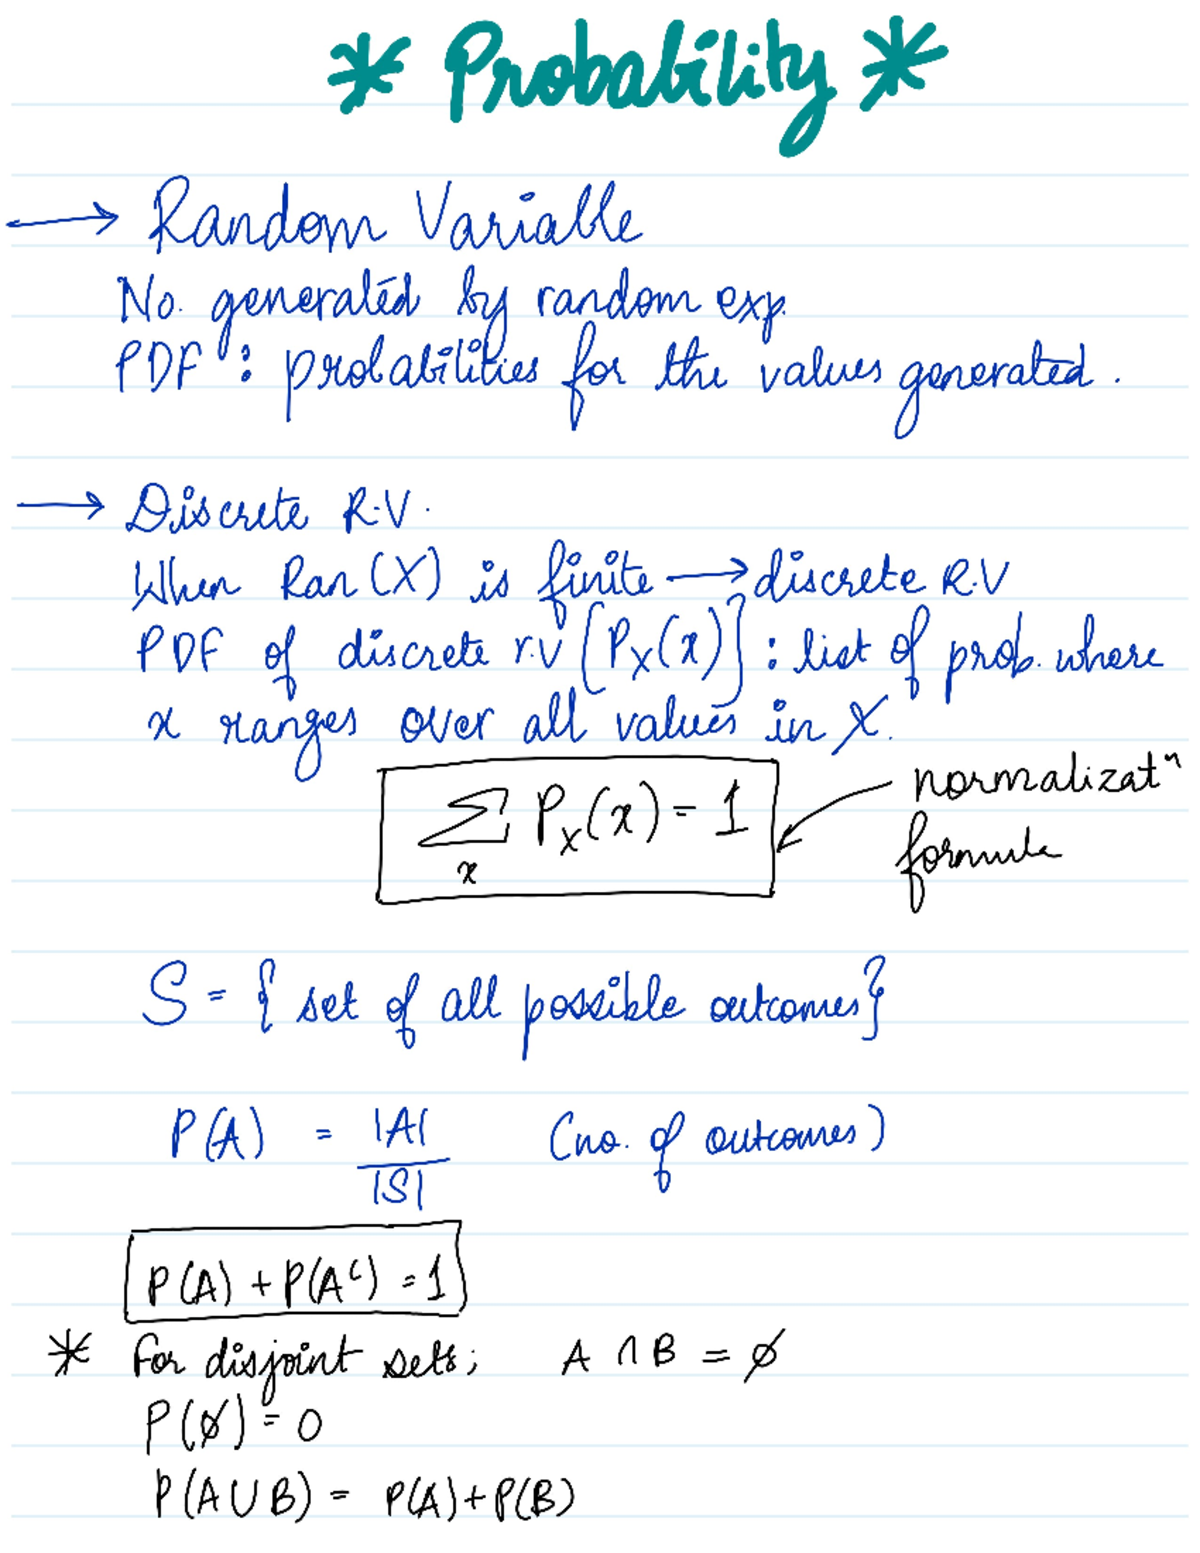 * Probability *
→ Random Variable
No. generated by random exp.
PDF : probabilities for the values generated.
→ Discrete R.V.
When Ran(X) is finite → discrete R.V
PDF of discrete r.v [P_X(x)] : list of prob. where
x ranges over all values in X.
∑_x P_X(x) = 1
normalizatⁿ
formula
S = { set of all possible outcomes}
P(A) = |A| / |S| (no. of outcomes)
P(A) + P(Aᶜ) = 1
* For disjoint sets; A ∩ B = ∅
P(∅) = 0
P(A∪B) = P(A)+P(B)